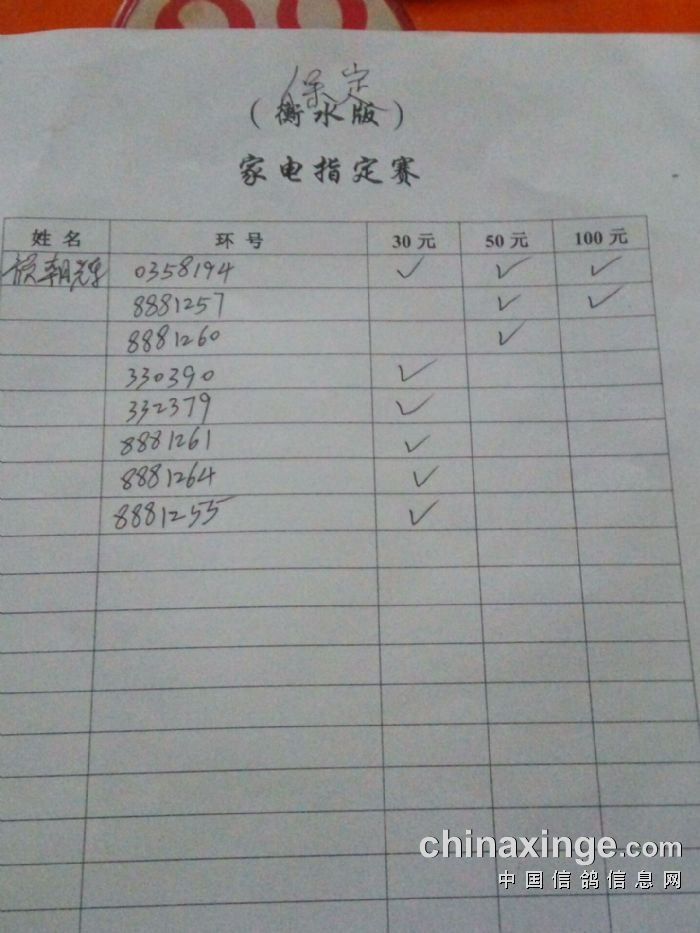 保定
（衡水版）
家电指定赛
姓名 环号 30元 50元 100元
侯朝辉 0358194 ✓ ✓ ✓
8881257 ✓ ✓
8881260 ✓
330390 ✓
332379 ✓
8881261 ✓
8881264 ✓
8881255 ✓
chinaxinge.com
中国信鸽信息网